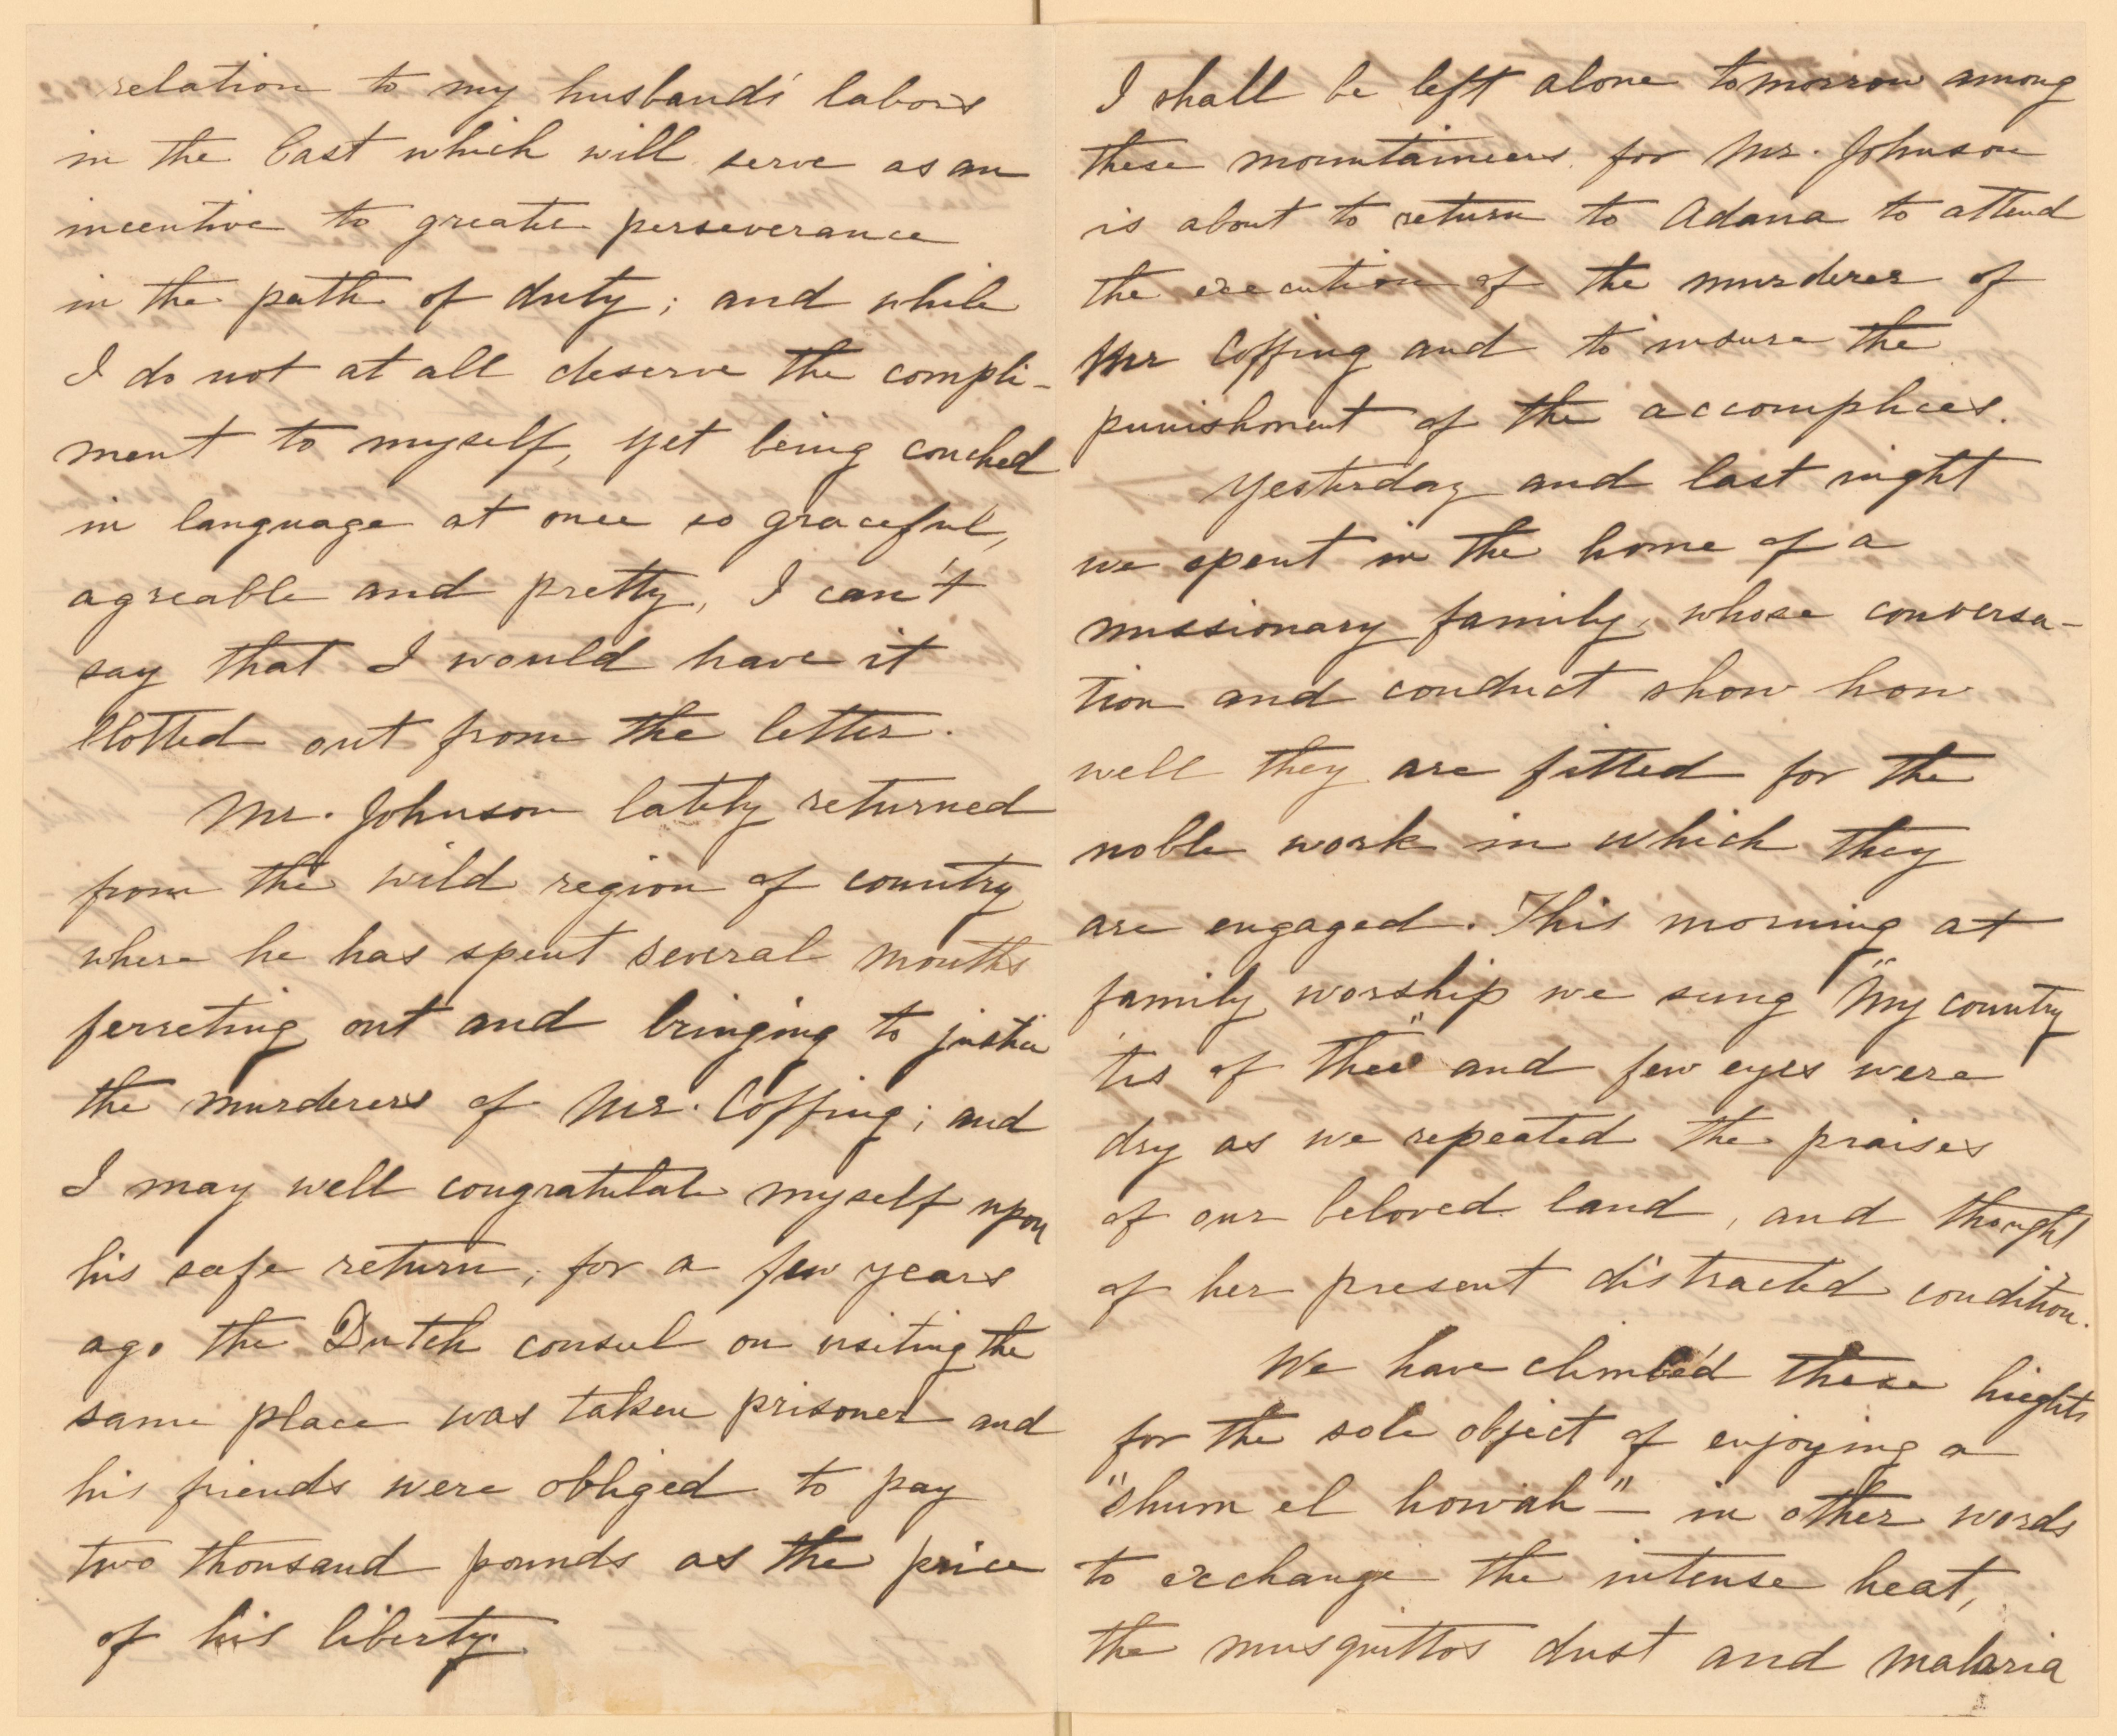 relation to my husband's labors
in the East which will serve as an
incentive to greater perseverance
in the path of duty; and while
I do not at all deserve the compli-
ment to myself, yet being couched
in language at once so graceful,
agreable and pretty, I can't
say that I would have it
blotted out from the letter.
Mr. Johnson lately returned
from the wild region of country
where he has spent several months
ferreting out and bringing to justice
the murderers of Mr. Coffing; and
I may well congratulate myself upon
his safe return, for a few years
ago the Dutch consul on visiting the
same place was taken prisoner and
his friends were obliged to pay
two thousand pounds as the price
of his liberty.
I shall be left alone tomorrow among
these mountaineers, for Mr. Johnson
is about to return to Adana to attend
the execution of the murderer of
Mr Coffing and to insure the
punishment of the accomplices.
Yesterday and last night
we spent in the home of a
missionary family, whose conversa-
tion and conduct show how
well they are fitted for the
noble work in which they
are engaged. This morning at
family worship we sung "My country
tis of thee" and few eyes were
dry as we repeated the praises
of our beloved land, and thought
of her present distracted condition.
We have climbed these hieghts
for the sole object of enjoying a
"shum el howah" – in other words
to exchange the intense heat,
the musquittos dust and malaria